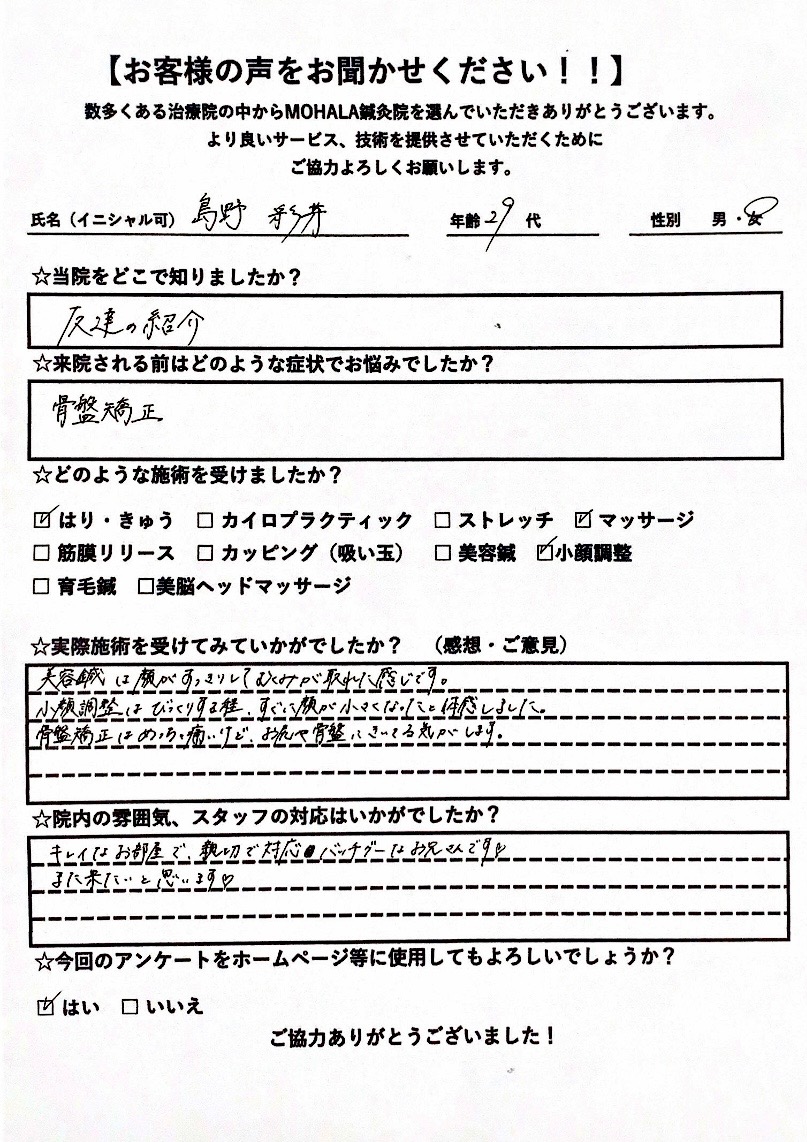 【お客様の声をお聞かせください！！】
数多くある治療院の中からMOHALA鍼灸院を選んでいただきありがとうございます。
より良いサービス、技術を提供させていただくために
ご協力よろしくお願いします。
氏名（イニシャル可） 島野 彩芽 年齢 29 代 性別 男・女
☆当院をどこで知りましたか？
友達の紹介
☆来院される前はどのような症状でお悩みでしたか？
骨盤矯正
☆どのような施術を受けましたか？
☑ はり・きゅう □ カイロプラクティック □ ストレッチ ☑ マッサージ
□ 筋膜リリース □ カッピング（吸い玉） □ 美容鍼 ☑小顔調整
□ 育毛鍼 □美脳ヘッドマッサージ
☆実際施術を受けてみていかがでしたか？ （感想・ご意見）
美容鍼は顔がすっきりしてむくみが取れた感じです。
小顔調整はびっくりする程、すぐに顔が小さくなったと体感しました。
骨盤矯正はめっちゃ痛いけど、お尻や骨盤にきいてる気がします。
☆院内の雰囲気、スタッフの対応はいかがでしたか？
キレイなお部屋で、親切で対応バッチグーなお兄さんです♡
また来たいと思います♡
☆今回のアンケートをホームページ等に使用してもよろしいでしょうか？
☑ はい □ いいえ
ご協力ありがとうございました！